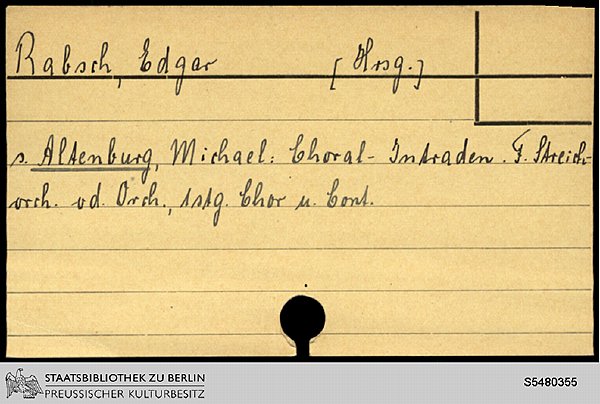 Rabsch, Edgar [Hrsg.]
s. Altenburg, Michael: Choral-Intraden. F. Streich-
orch. od. Orch., 1stg. Chor u. Cont.
STAATSBIBLIOTHEK ZU BERLIN
PREUSSISCHER KULTURBESITZ
S5480355